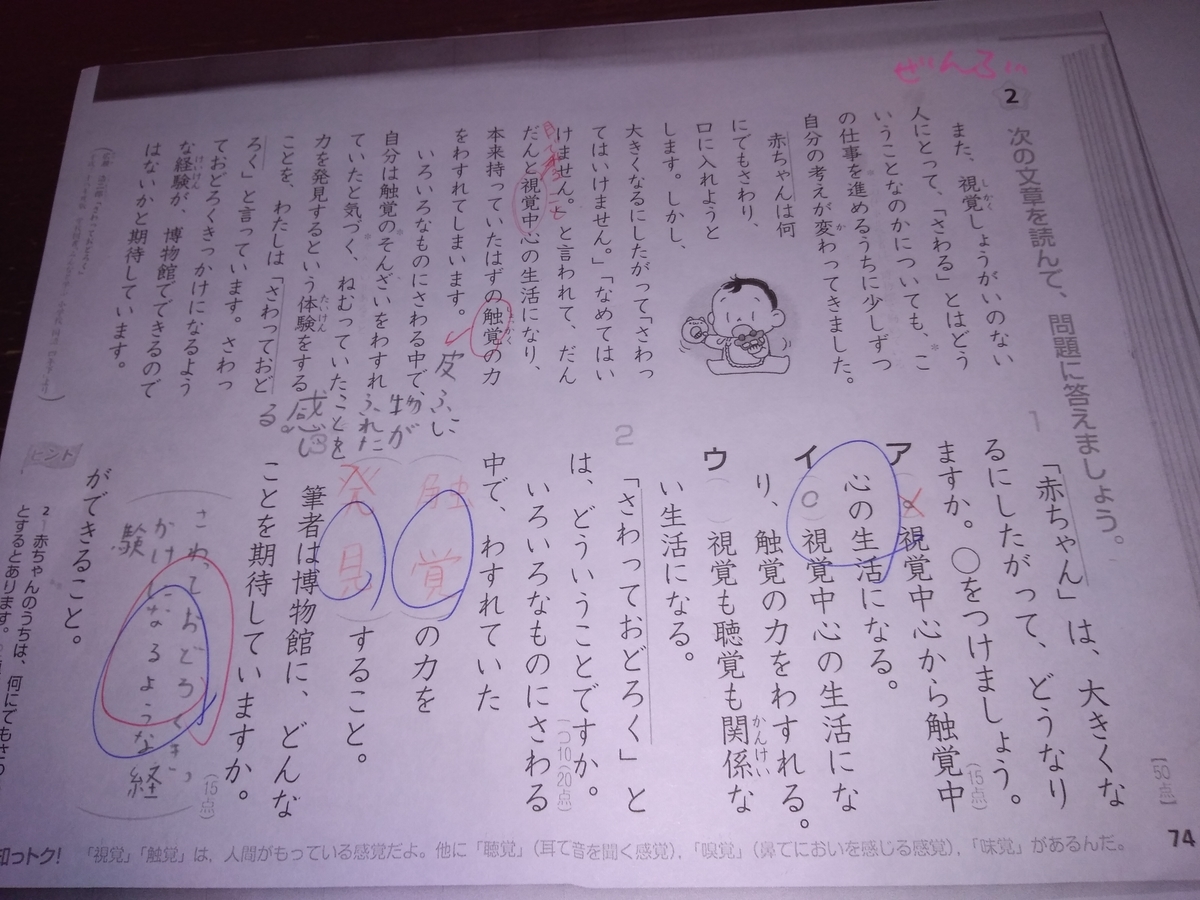 ぜんぶ
2
次の文章を読んで、問題に答えましょう。
[50点]
また、視覚しょうがいのない
人にとって、「さわる」とはどう
いうことなのかについても、こ
の仕事を進めるうちに少しずつ
自分の考えが変わってきました。
赤ちゃんは何
にでもさわり、
口に入れようと
します。しかし、
大きくなるにしたがって「さわっ
てはいけません。」「なめてはい
けません。」と言われて、だん
だんと視覚中心の生活になり、
本来持っていたはずの触覚の力
をわすれてしまいます。
いろいろなものにさわる中で、
自分は触覚のそんざいをわすれ
ていたと気づく、ねむっていた
力を発見するという体験をする
ことを、わたしは「さわっておど
ろく」と言っています。さわっ
ておどろくきっかけになるよう
な経験が、博物館でできるので
はないかと期待しています。
皮ふに
物が
ふれた
ことを
感じ
る。
1
「赤ちゃん」は、大きくな
るにしたがって、どうなり
ますか。○をつけましょう。
(15点)
ア( )視覚中心から触覚中
心の生活になる。
イ(○)視覚中心の生活にな
り、触覚の力をわすれる。
ウ( )視覚も聴覚も関係な
い生活になる。
2
「さわっておどろく」と
は、どういうことですか。
一つ10(20点)
いろいろなものにさわる
中で、わすれていた
(触覚)の力を
(発見)すること。
筆者は博物館に、どんな
ことを期待していますか。
(15点)
さわっておどろくきっ
かけになるような経
験
ができること。
ヒント
2 赤ちゃんのうちは、何にでもさわ
とするとあります。
知っトク!
「視覚」「触覚」は、人間がもっている感覚だよ。他に「聴覚」(耳で音を聞く感覚)、「嗅覚」(鼻でにおいを感じる感覚)、「味覚」があるんだ。
74